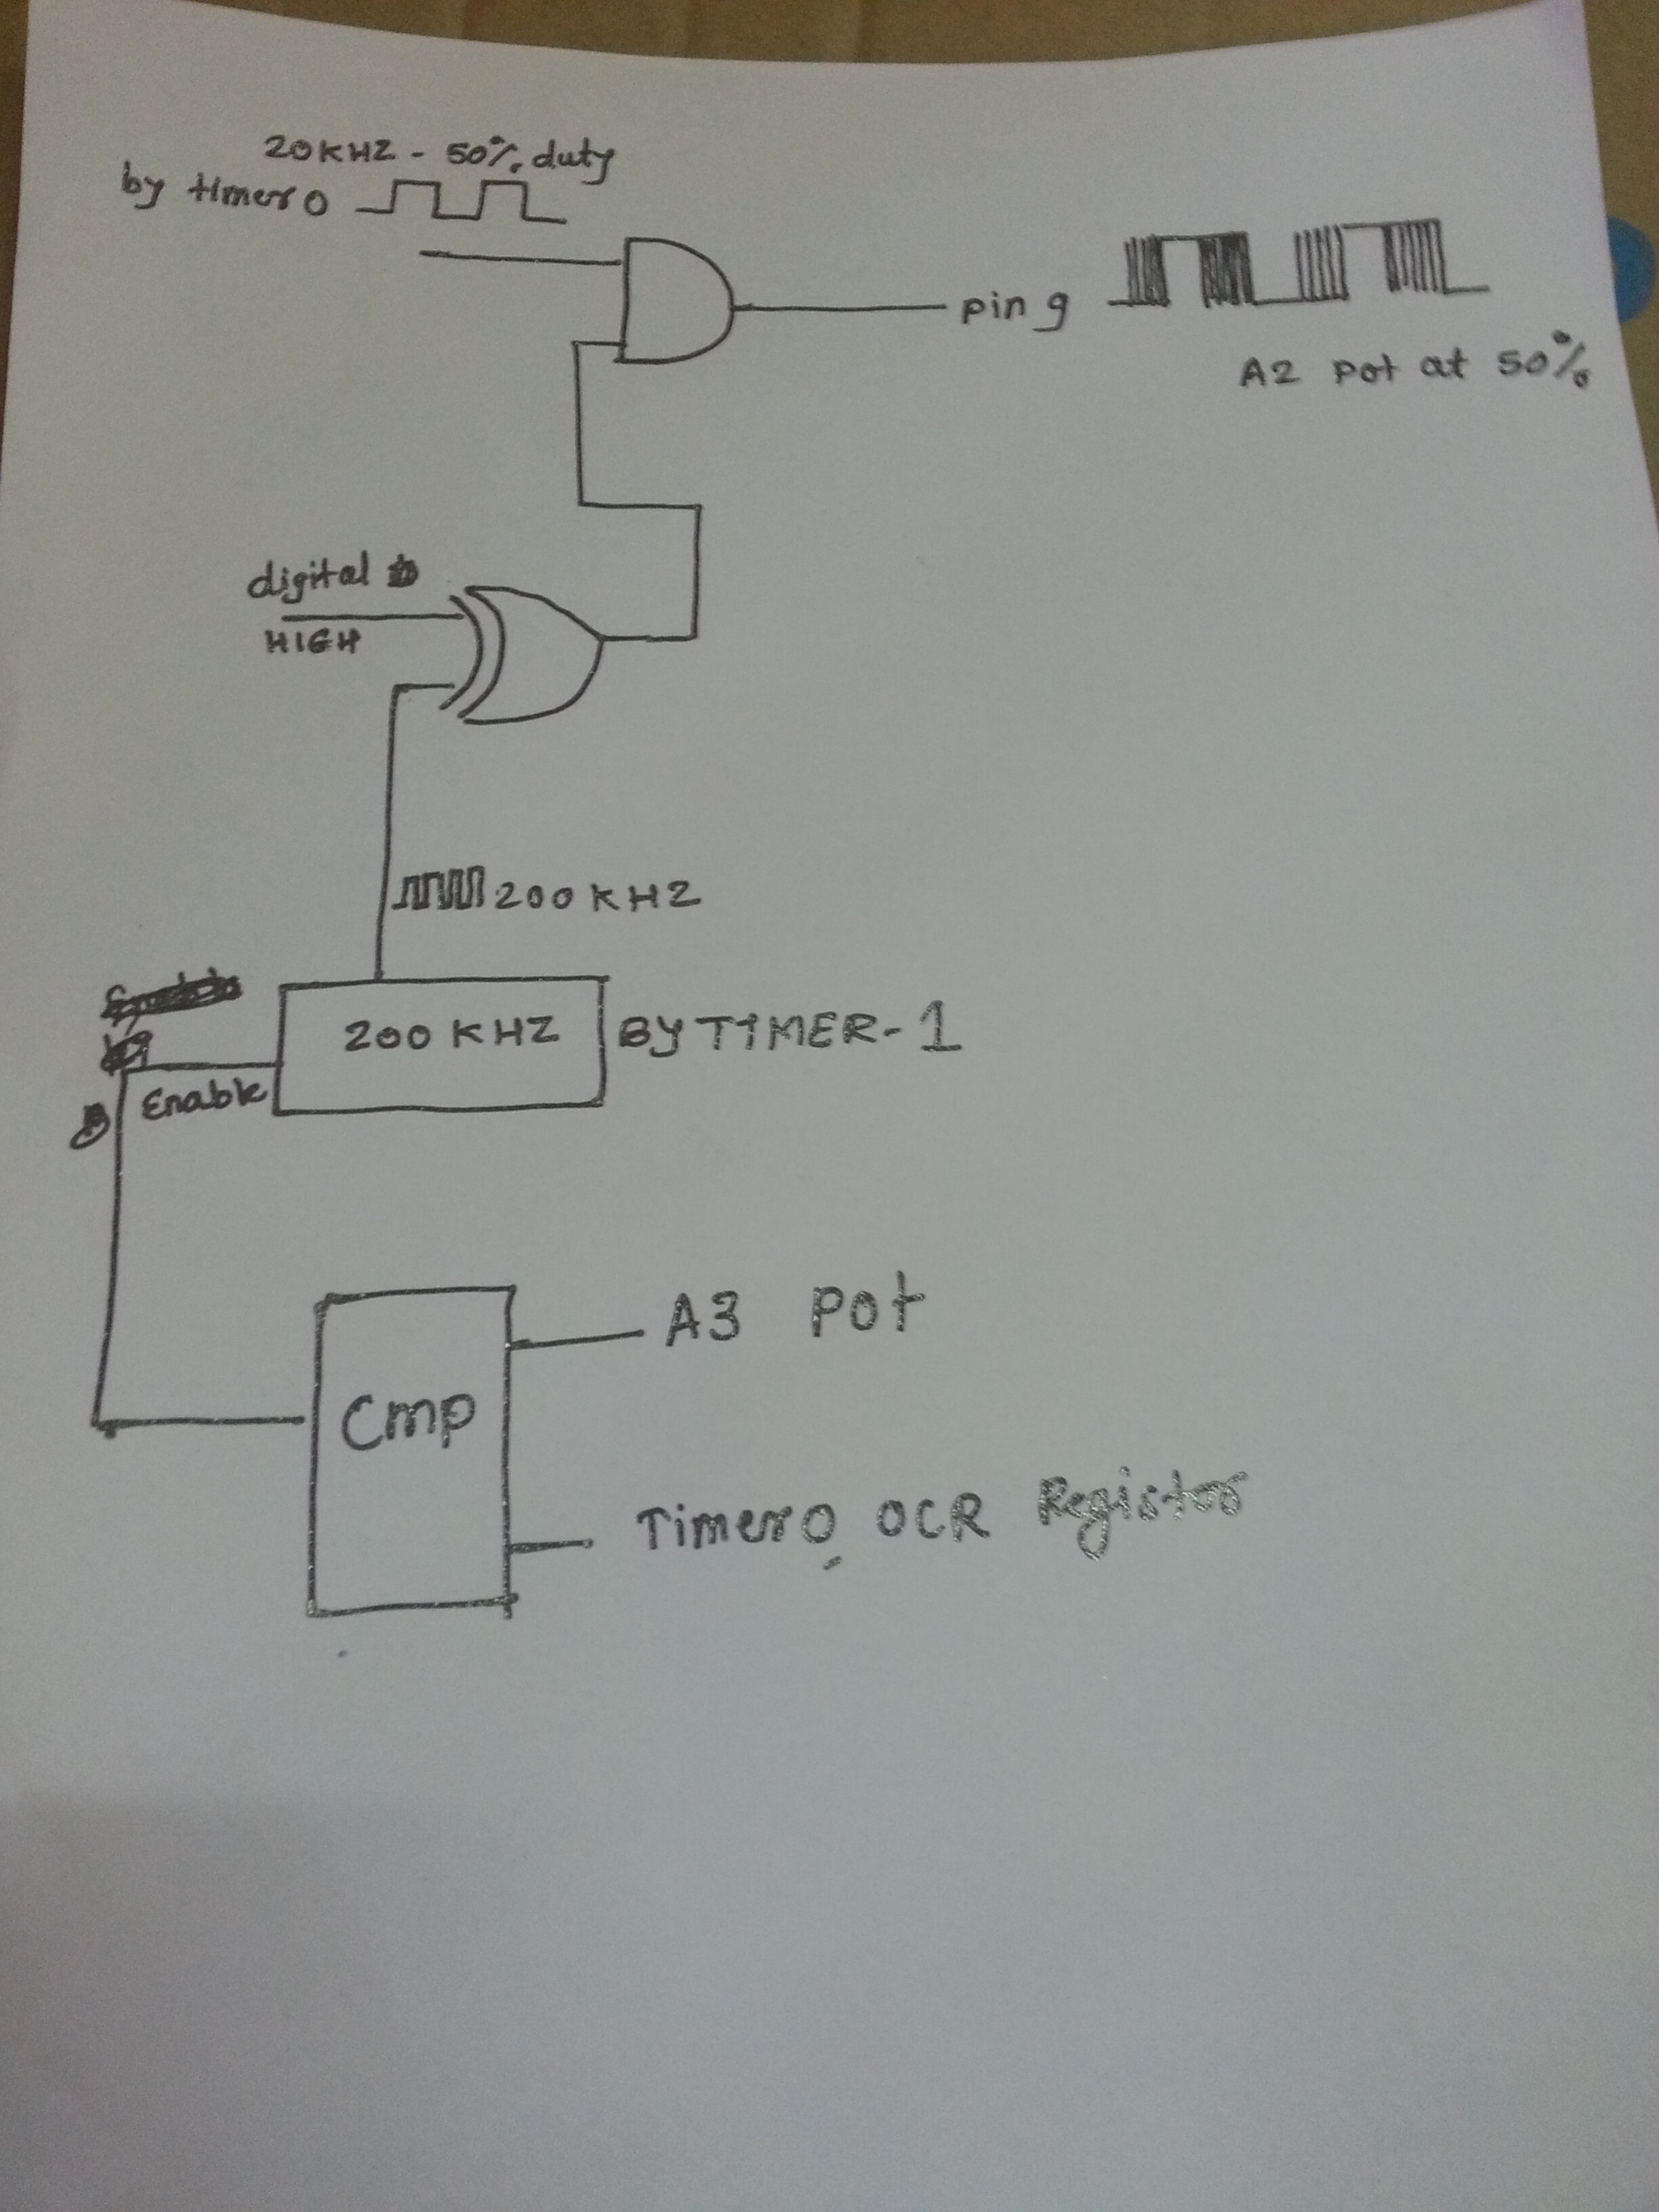 20KHZ - 50% duty
by timer 0
pin 9
A2 pot at 50%
digital
HIGH
200 KHZ
200 KHZ
BY TIMER-1
Enable
A3 Pot
Cmp
Timer0 OCR Registor